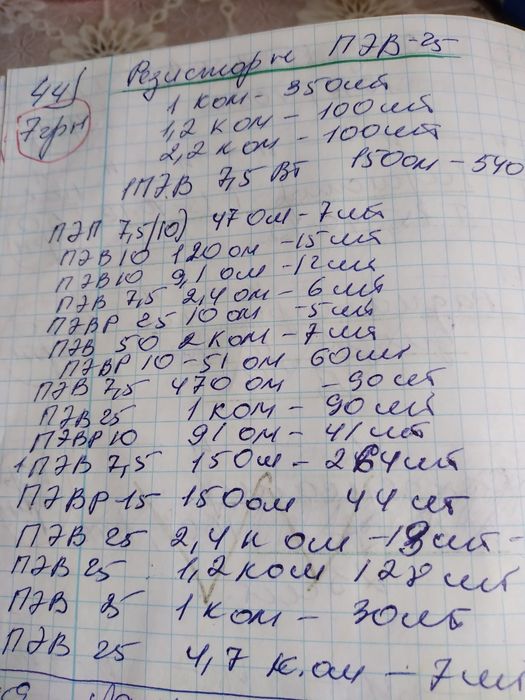 441 Резисторы ПЭВ-25
7грн
1 ком - 350шт
1,2 ком - 100шт
2,2 ком - 100шт
1ПЭВ 7,5 Вт 150 ом - 540
ПЭП 7,5(10) 47 Ом - 7шт
ПЭВ 10 120 ом - 15шт
ПЭВ 10 9,1 ом - 12шт
ПЭВ 7,5 2,4 ом - 6 шт
ПЭВР 25 10 ом - 5шт
ПЭВ 50 2 ком - 7шт
ПЭВР 10 - 51 ом 60шт
ПЭВ 7,5 470 ом - 90шт
ПЭВ 25 1 ком - 90шт
ПЭВР 10 91 ом - 41шт
1ПЭВ 7,5 15Ом - 264шт
ПЭВР-15 150ом 44 шт
ПЭВ 25 2,4 к ом - шт -
ПЭВ 25 1,2 ком 128шт
ПЭВ 25 1 ком - 30шт
ПЭВ 25 4,7 к.ом - 7шт